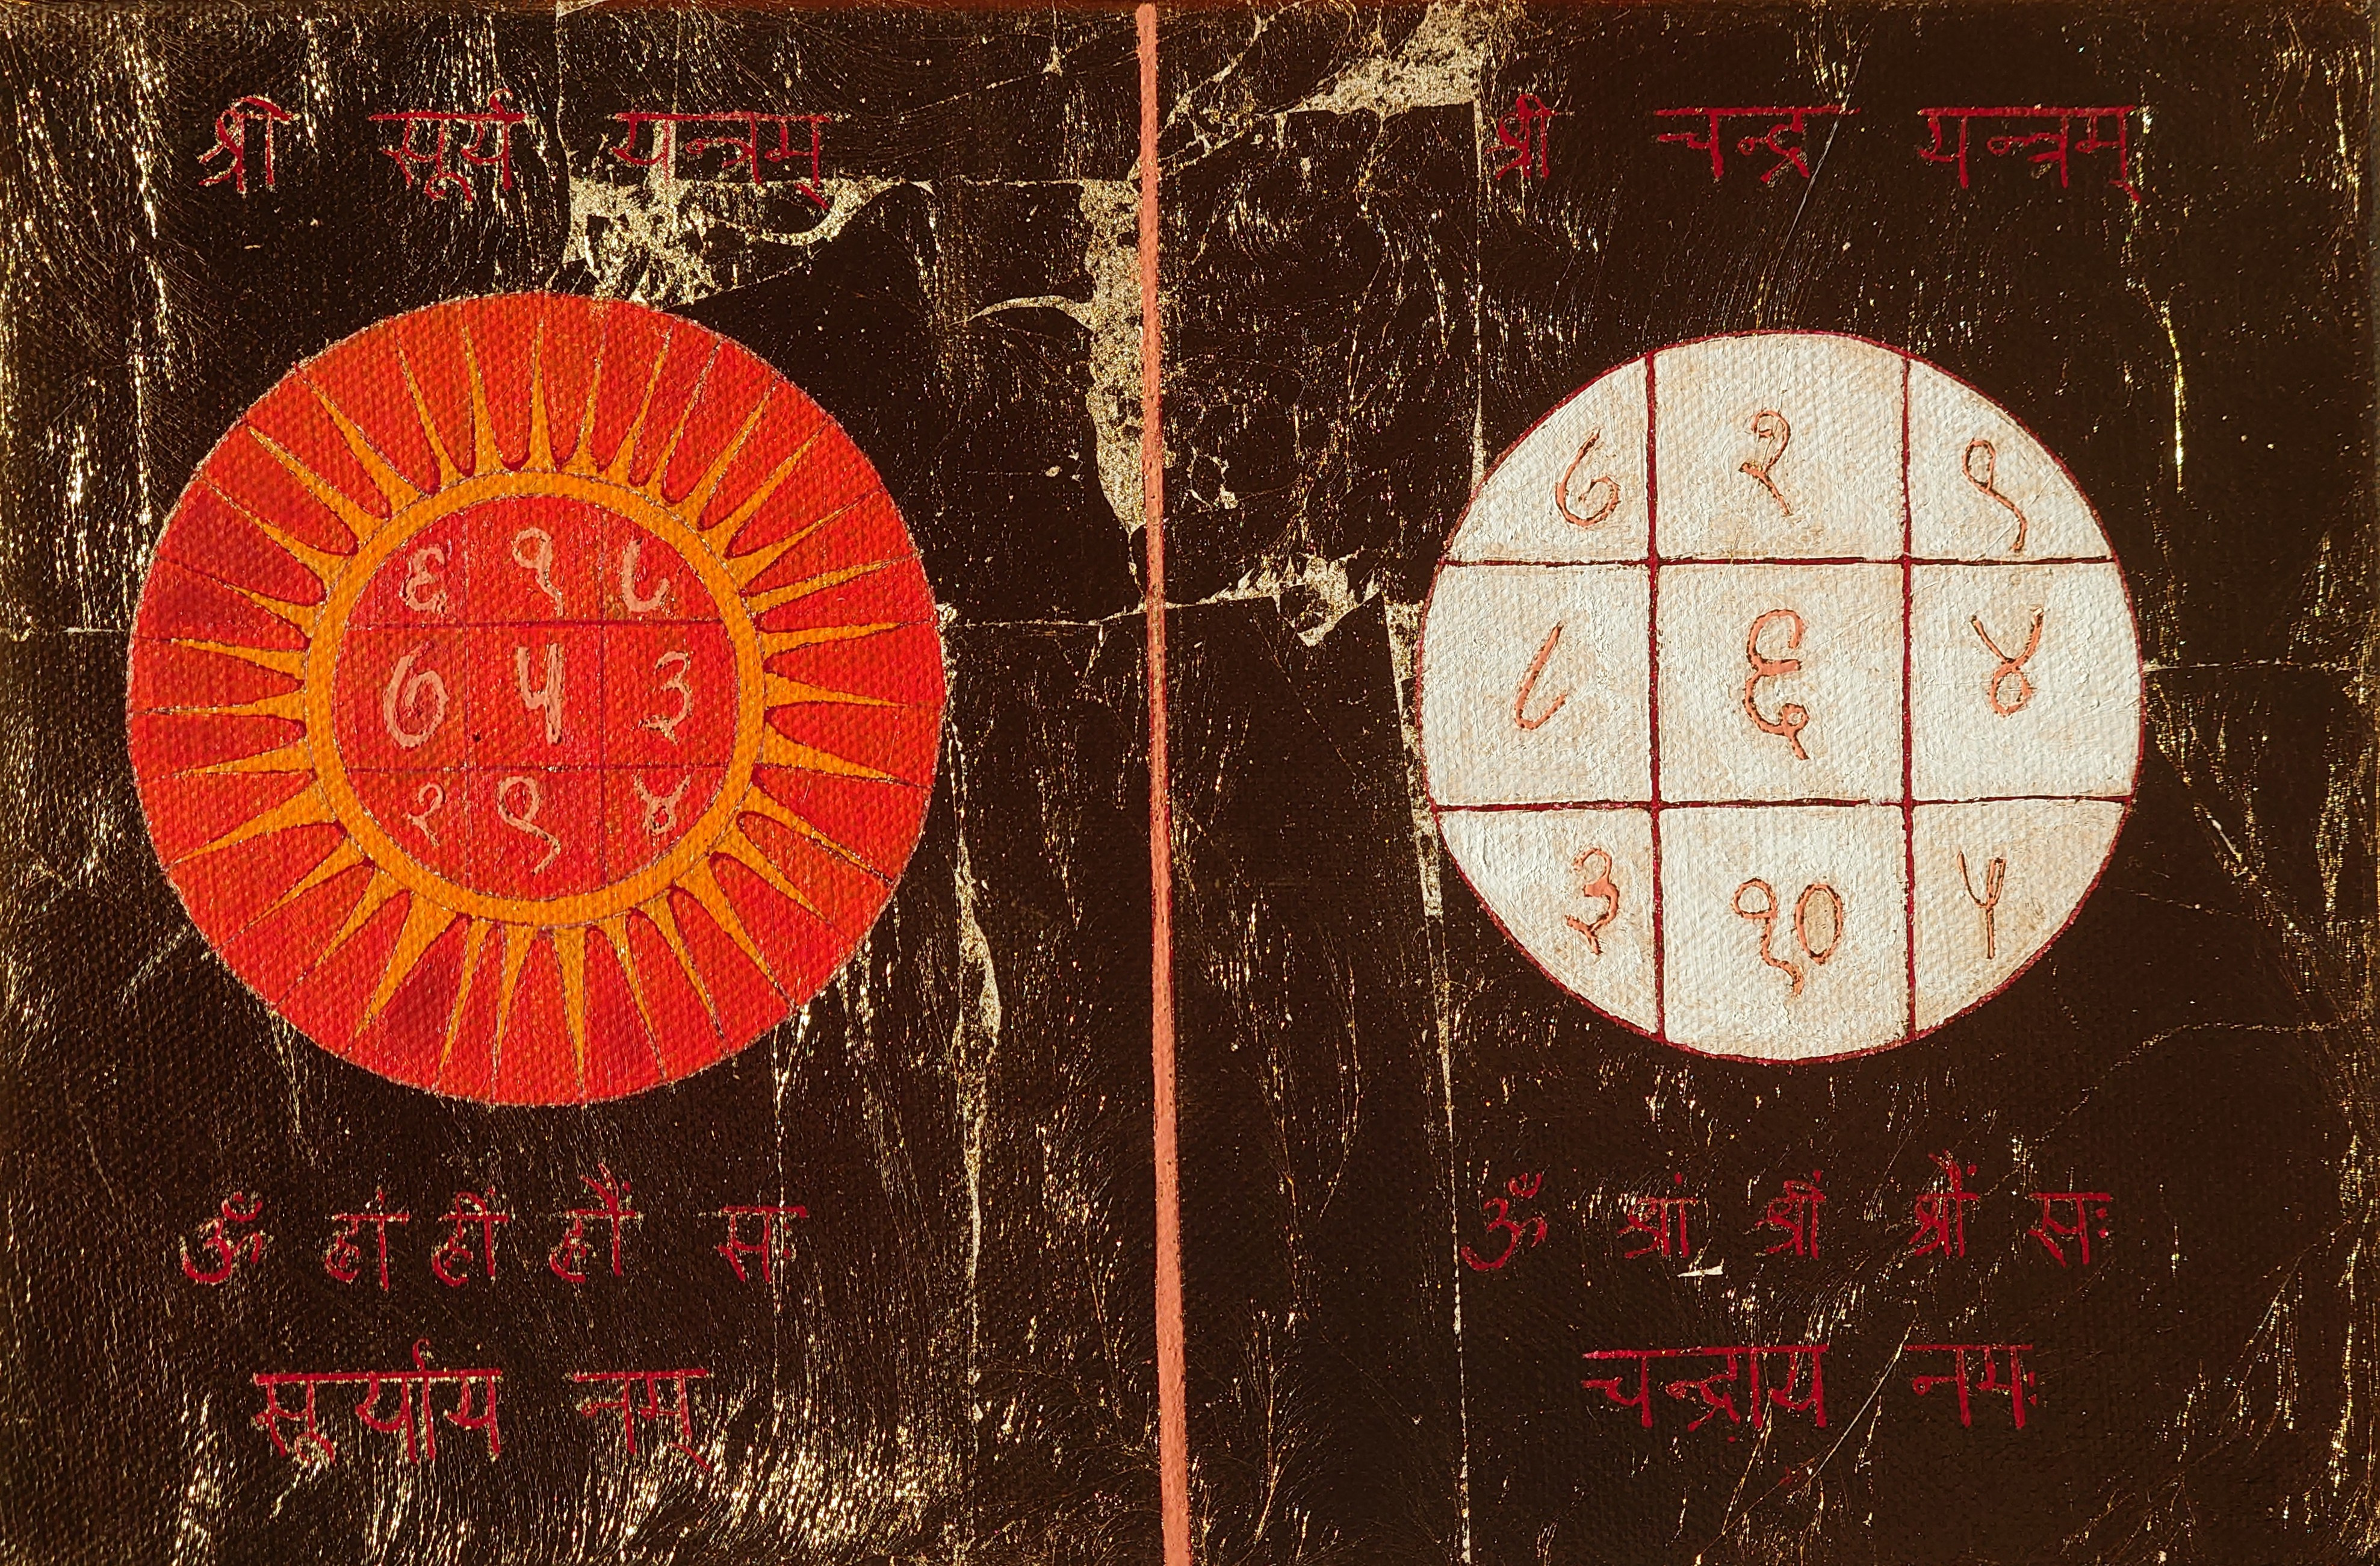 श्री सूर्य यन्त्रम्
६ १ ८
७ ५ ३
२ ९ ४
ॐ ह्रां ह्रीं ह्रौं सः
सूर्याय नम्
श्री चन्द्र यन्त्रम्
७ २ ९
८ ६ ४
३ १० ५
ॐ श्रां श्रीं श्रौं सः
चन्द्राय नमः